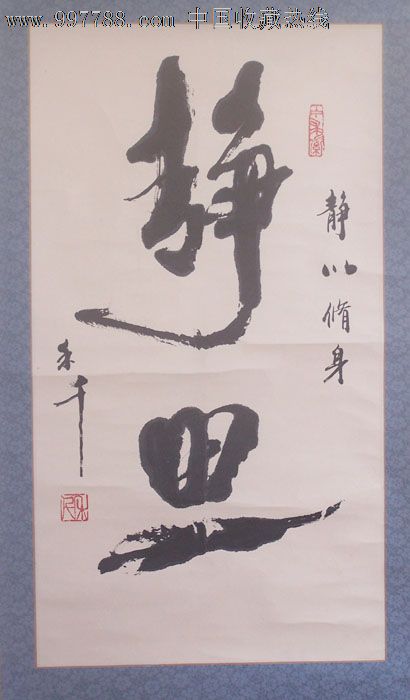 www.997788.com 中国收藏热线
静以脩身
静思